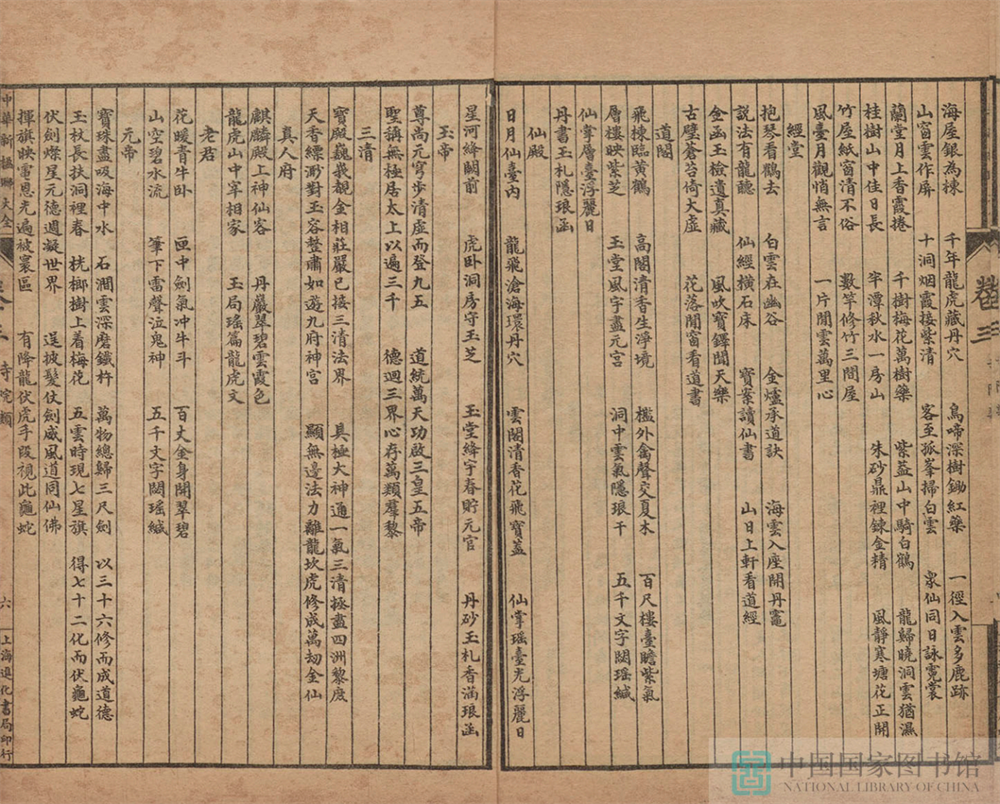 海屋銀為棟 千年龍虎藏丹穴 鳥啼深樹鋤紅藥 一徑入雲多鹿跡
山窗雲作屏 十洞烟霞接紫清 客至孤峯掃白雲 眾仙同日詠霓裳
蘭堂月上香霞捲 千樹梅花萬樹藥 紫葢山中騎白鶴 龍歸曉洞雲猶濕
桂樹山中佳日長 半潭秋水一房山 朱砂鼎裡鍊金精 風靜寒塘花正開
竹屋紙窗清不俗 數竿修竹三間屋
風臺月觀悄無言 一片閒雲萬里心
經堂
抱琴看鶴去 白雲在幽谷 金爐承道訣 海雲入座開丹竈
說法有龍聽 仙經橫石床 寶案讀仙書 山日上軒看道經
金函玉檢遺真藏 風吹寶鐸聞天樂
古壁蒼苔倚大虛 花落閒窗看道書
道閣
飛棟臨黃鶴 高閣清香生淨境 檻外禽聲交夏木 百尺樓臺瞻紫氣
層樓映紫芝 玉堂風宇盡元宮 洞中雲氣隱琅干 五千文字閟瑶緘
仙掌層臺浮麗日
丹書玉札隱琅函
仙殿
日月仙臺內 龍飛滄海環丹穴 雲閣清香花飛寶葢 仙掌瑶臺光浮麗日
星河絳闕前 虎卧洞房守玉芝 玉堂絳宇春貯元官 丹砂玉札香滿琅函
玉帝
尊尚元穹步清虛而登九五 道統萬天功啟三皇五帝
聖稱無極居太上以遍三千 德迴三界心存萬類羣黎
三清
寶殿巍我覩金相莊嚴已接三清法界 具極大神通一氣三清拯盡四洲黎庶
天香縹渺對玉容整肅如遊九府神宮 顯無邊法力離龍坎虎修成萬劫金仙
真人府
麒麟殿上神仙客 丹巖翠碧雲霞色
龍虎山中宰相家 玉局瑤篇龍虎文
老君
花暖青牛卧 匣中劍氣冲牛斗 百丈金身開翠碧
山空碧水流 筆下雷聲泣鬼神 五千文字閟瑶緘
元帝
寶珠盡吸海中水 石澗雲深磨鐵杵 萬物總歸三尺劍 以三十六修而成道德
玉杖長扶洞裡春 桄榔樹上着梅花 五雲時現七星旗 得七十二化而伏龜蛇
伏劍燦星元德週凝世界 逞披髮仗劍威風道同仙佛
揮旗映電恩光遍被寰區 有降龍伏虎手段視此龜蛇
中華新楹聯大全
卷三 寺院類
六
上海進化書局印行
卷三
中国国家图书馆
NATIONAL LIBRARY OF CHINA